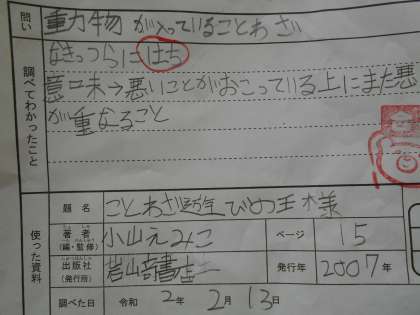 問い 動物が入っていることわざ
調べてわかったこと なきっつらにはち
意味→悪いことがおこっている上にまた悪
が重なること
使った資料
題名 ことわざ
著者(編・監修) 小山えみこ ページ 15
出版社(発行所) 岩崎書店 発行年 2007年
調べた日 令和 2年 2月 13日